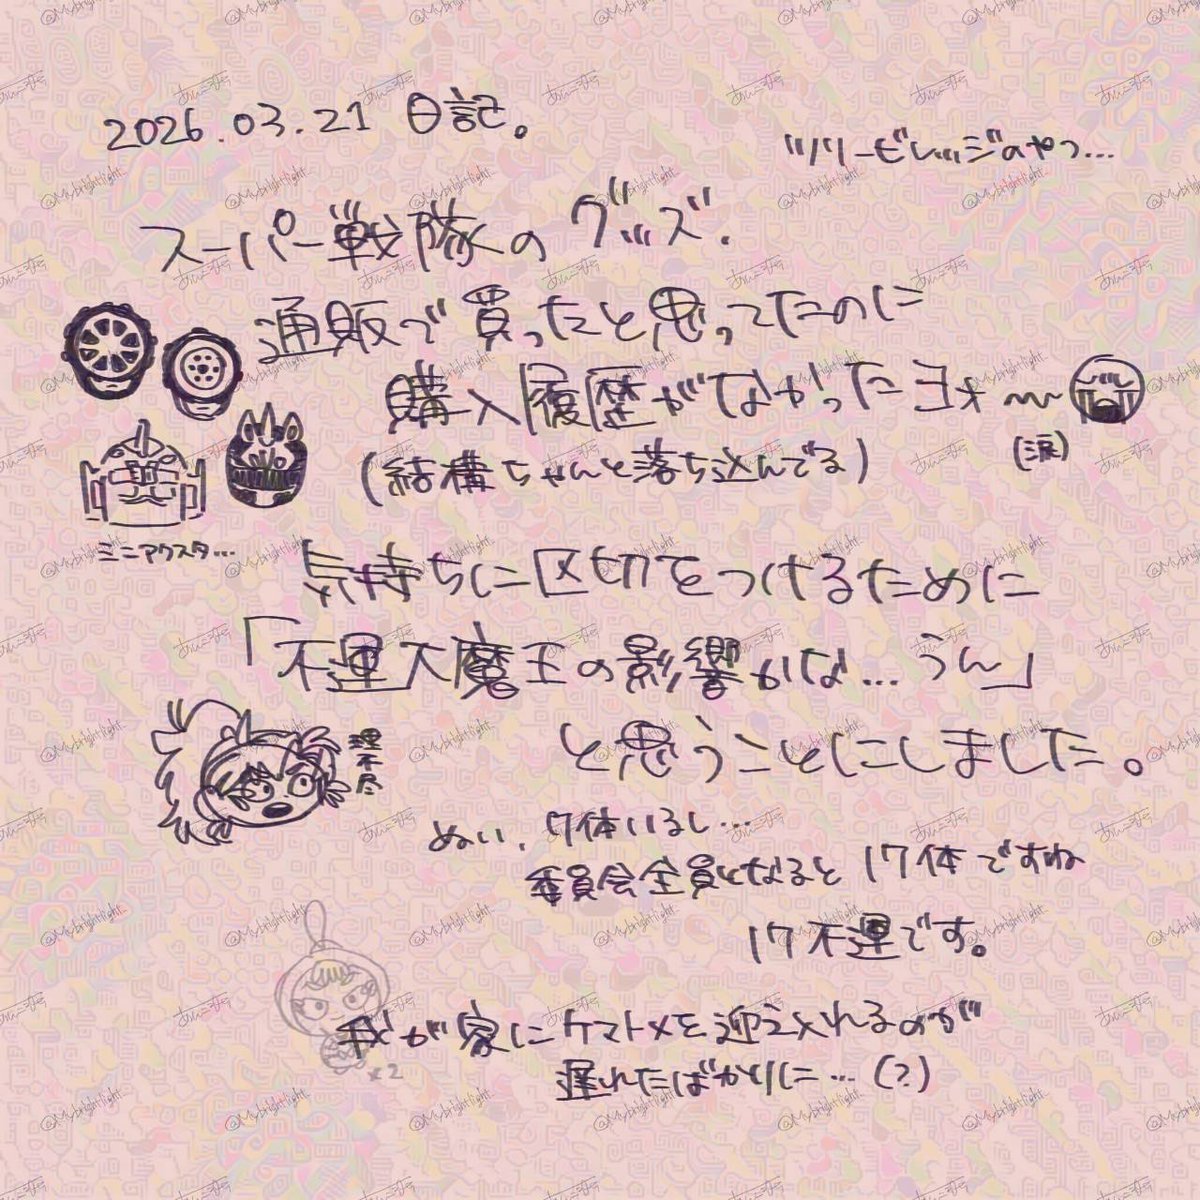 2026.03.21 日記。
ツリービレッジのやつ...
スーパー戦隊のグッズ.
通販で買ったと思ってたのに
購入履歴がなかったヨォ〜
(涙)
(結構ちゃんと落ち込んでる)
ミニアクスタ...
気持ちに区切をつけるために
「不運大魔王の影響かな...うん」
理不尽
と思うことにしました。
ぬい、7体いるし...
委員会全員となると17体ですね
17不運です。
我が家にケマトメを迎え入れるのが
遅れたばかりに...(?)
x2
@Mybrightlight_